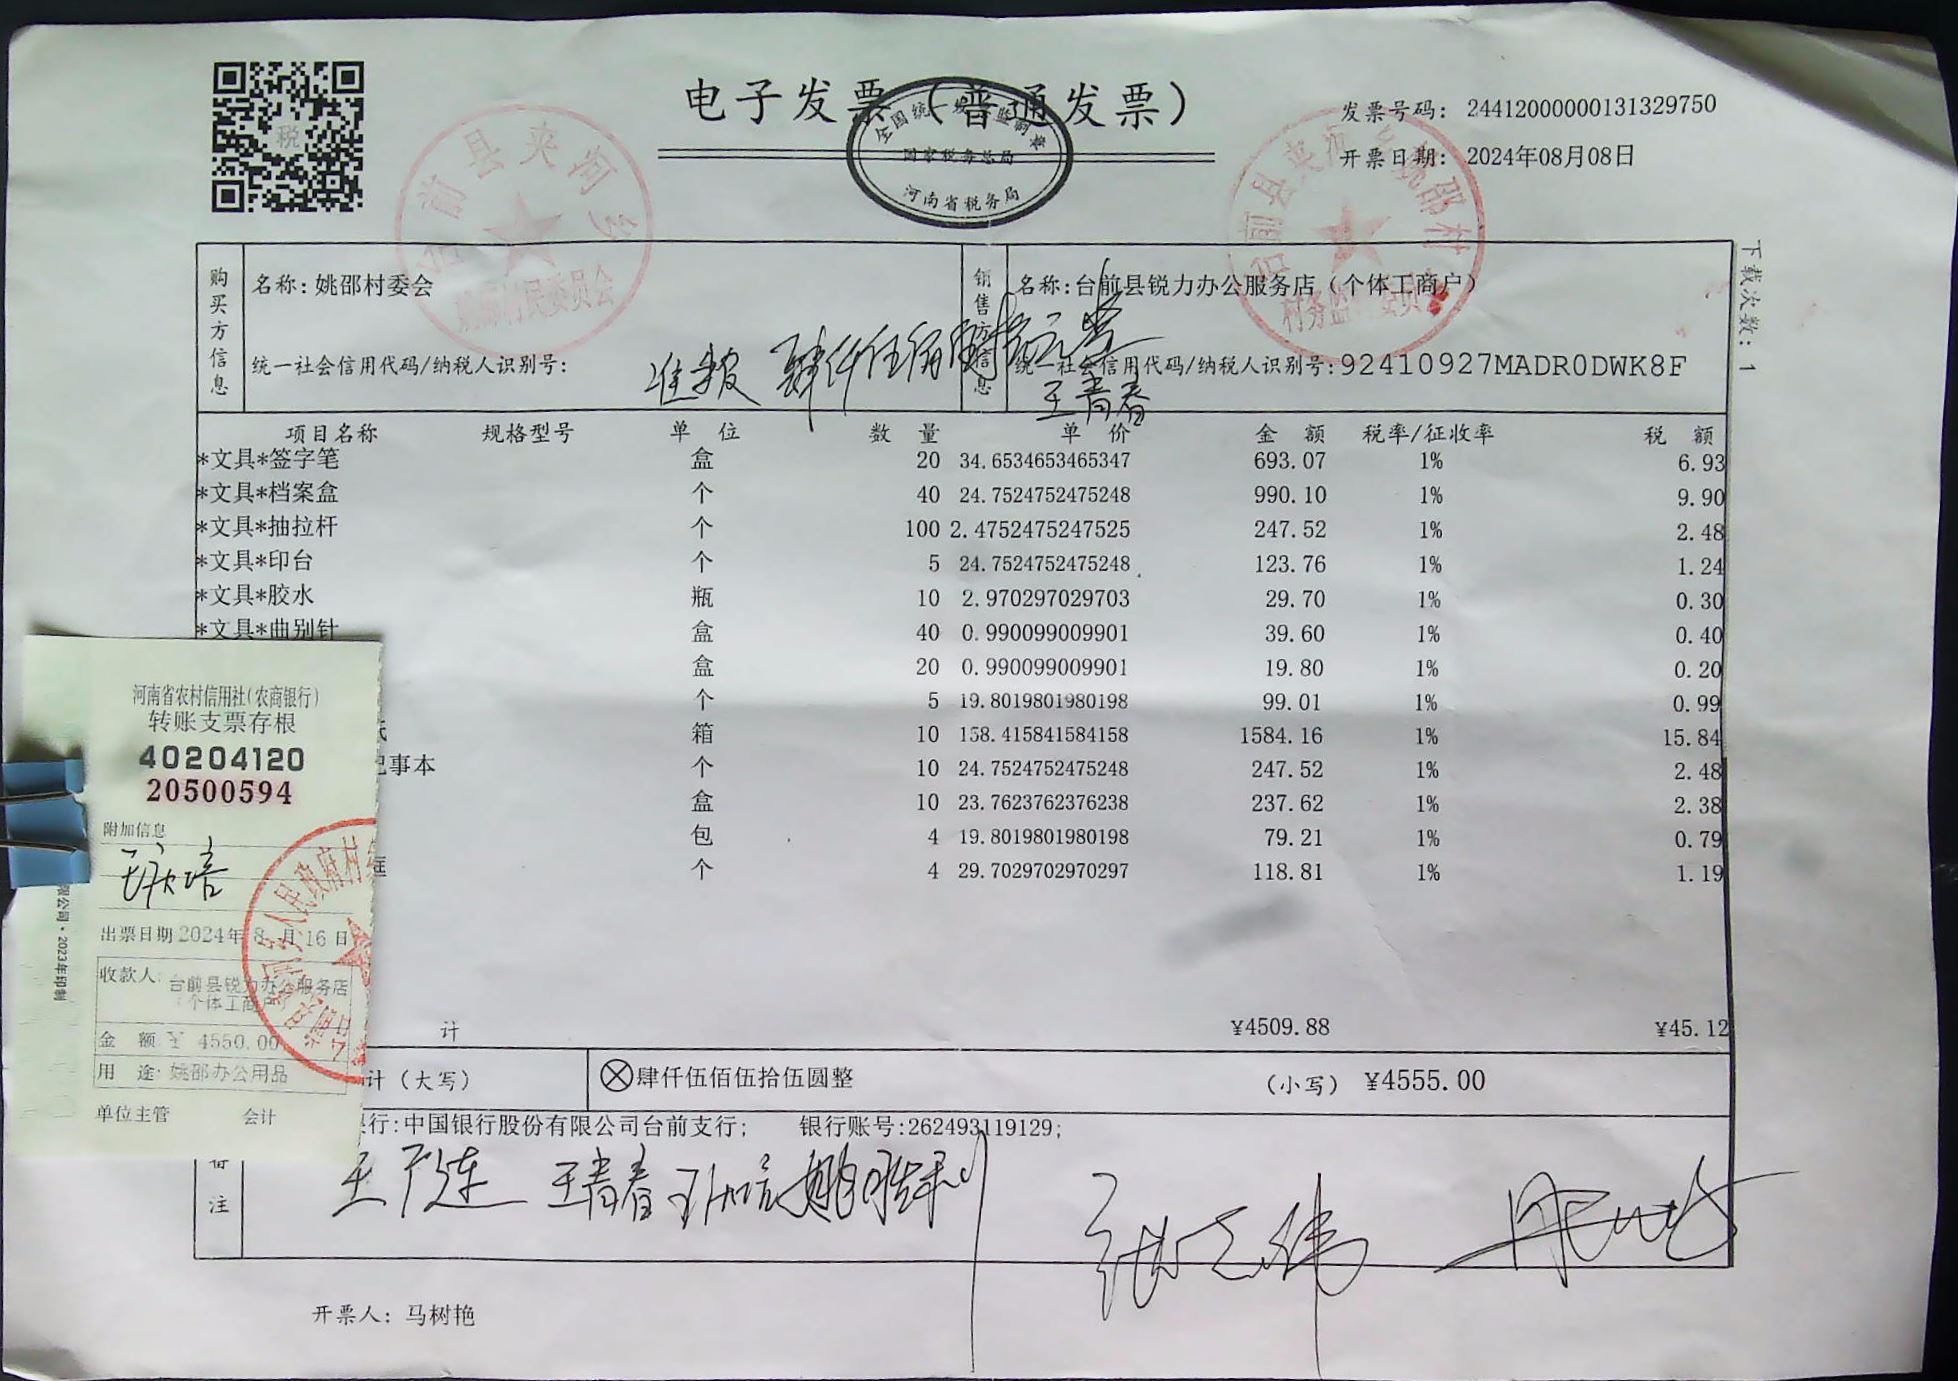 电子发票（普通发票）
全国统一发票监制章
国家税务总局
河南省税务局
发票号码： 24412000000131329750
开票日期： 2024年08月08日
税
台前县夹河乡
姚邵村民委员会
台前县夹河乡姚邵村
村务监督委员会
下载次数：1
购买方信息
名称：姚邵村委会
统一社会信用代码/纳税人识别号：
销售方信息
名称：台前县锐力办公服务店（个体工商户）
统一社会信用代码/纳税人识别号：92410927MADR0DWK8F
准报 肆仟伍佰
王青春
项目名称 规格型号 单 位 数 量 单 价 金 额 税率/征收率 税 额
*文具*签字笔 盒 20 34.6534653465347 693.07 1% 6.93
*文具*档案盒 个 40 24.7524752475248 990.10 1% 9.90
*文具*抽拉杆 个 100 2.4752475247525 247.52 1% 2.48
*文具*印台 个 5 24.7524752475248 123.76 1% 1.24
*文具*胶水 瓶 10 2.970297029703 29.70 1% 0.30
*文具*曲别针 盒 40 0.990099009901 39.60 1% 0.40
盒 20 0.990099009901 19.80 1% 0.20
个 5 19.8019801980198 99.01 1% 0.99
箱 10 158.415841584158 1584.16 1% 15.84
事本 个 10 24.7524752475248 247.52 1% 2.48
盒 10 23.7623762376238 237.62 1% 2.38
包 4 19.8019801980198 79.21 1% 0.79
个 4 29.7029702970297 118.81 1% 1.19
计 ¥4509.88 ¥45.12
计（大写） ⊗肆仟伍佰伍拾伍圆整 （小写） ¥4555.00
行:中国银行股份有限公司台前支行; 银行账号:262493119129;
备注
王青春
开票人： 马树艳
河南省农村信用社（农商银行）
转账支票存根
40204120
20500594
附加信息
出票日期 2024年 8 月 16 日
收款人： 台前县锐力办公服务店
（个体工商户
金 额 ¥ 4550.00
用 途： 姚邵办公用品
单位主管 会计
限公司·2023年印制
人民政府村